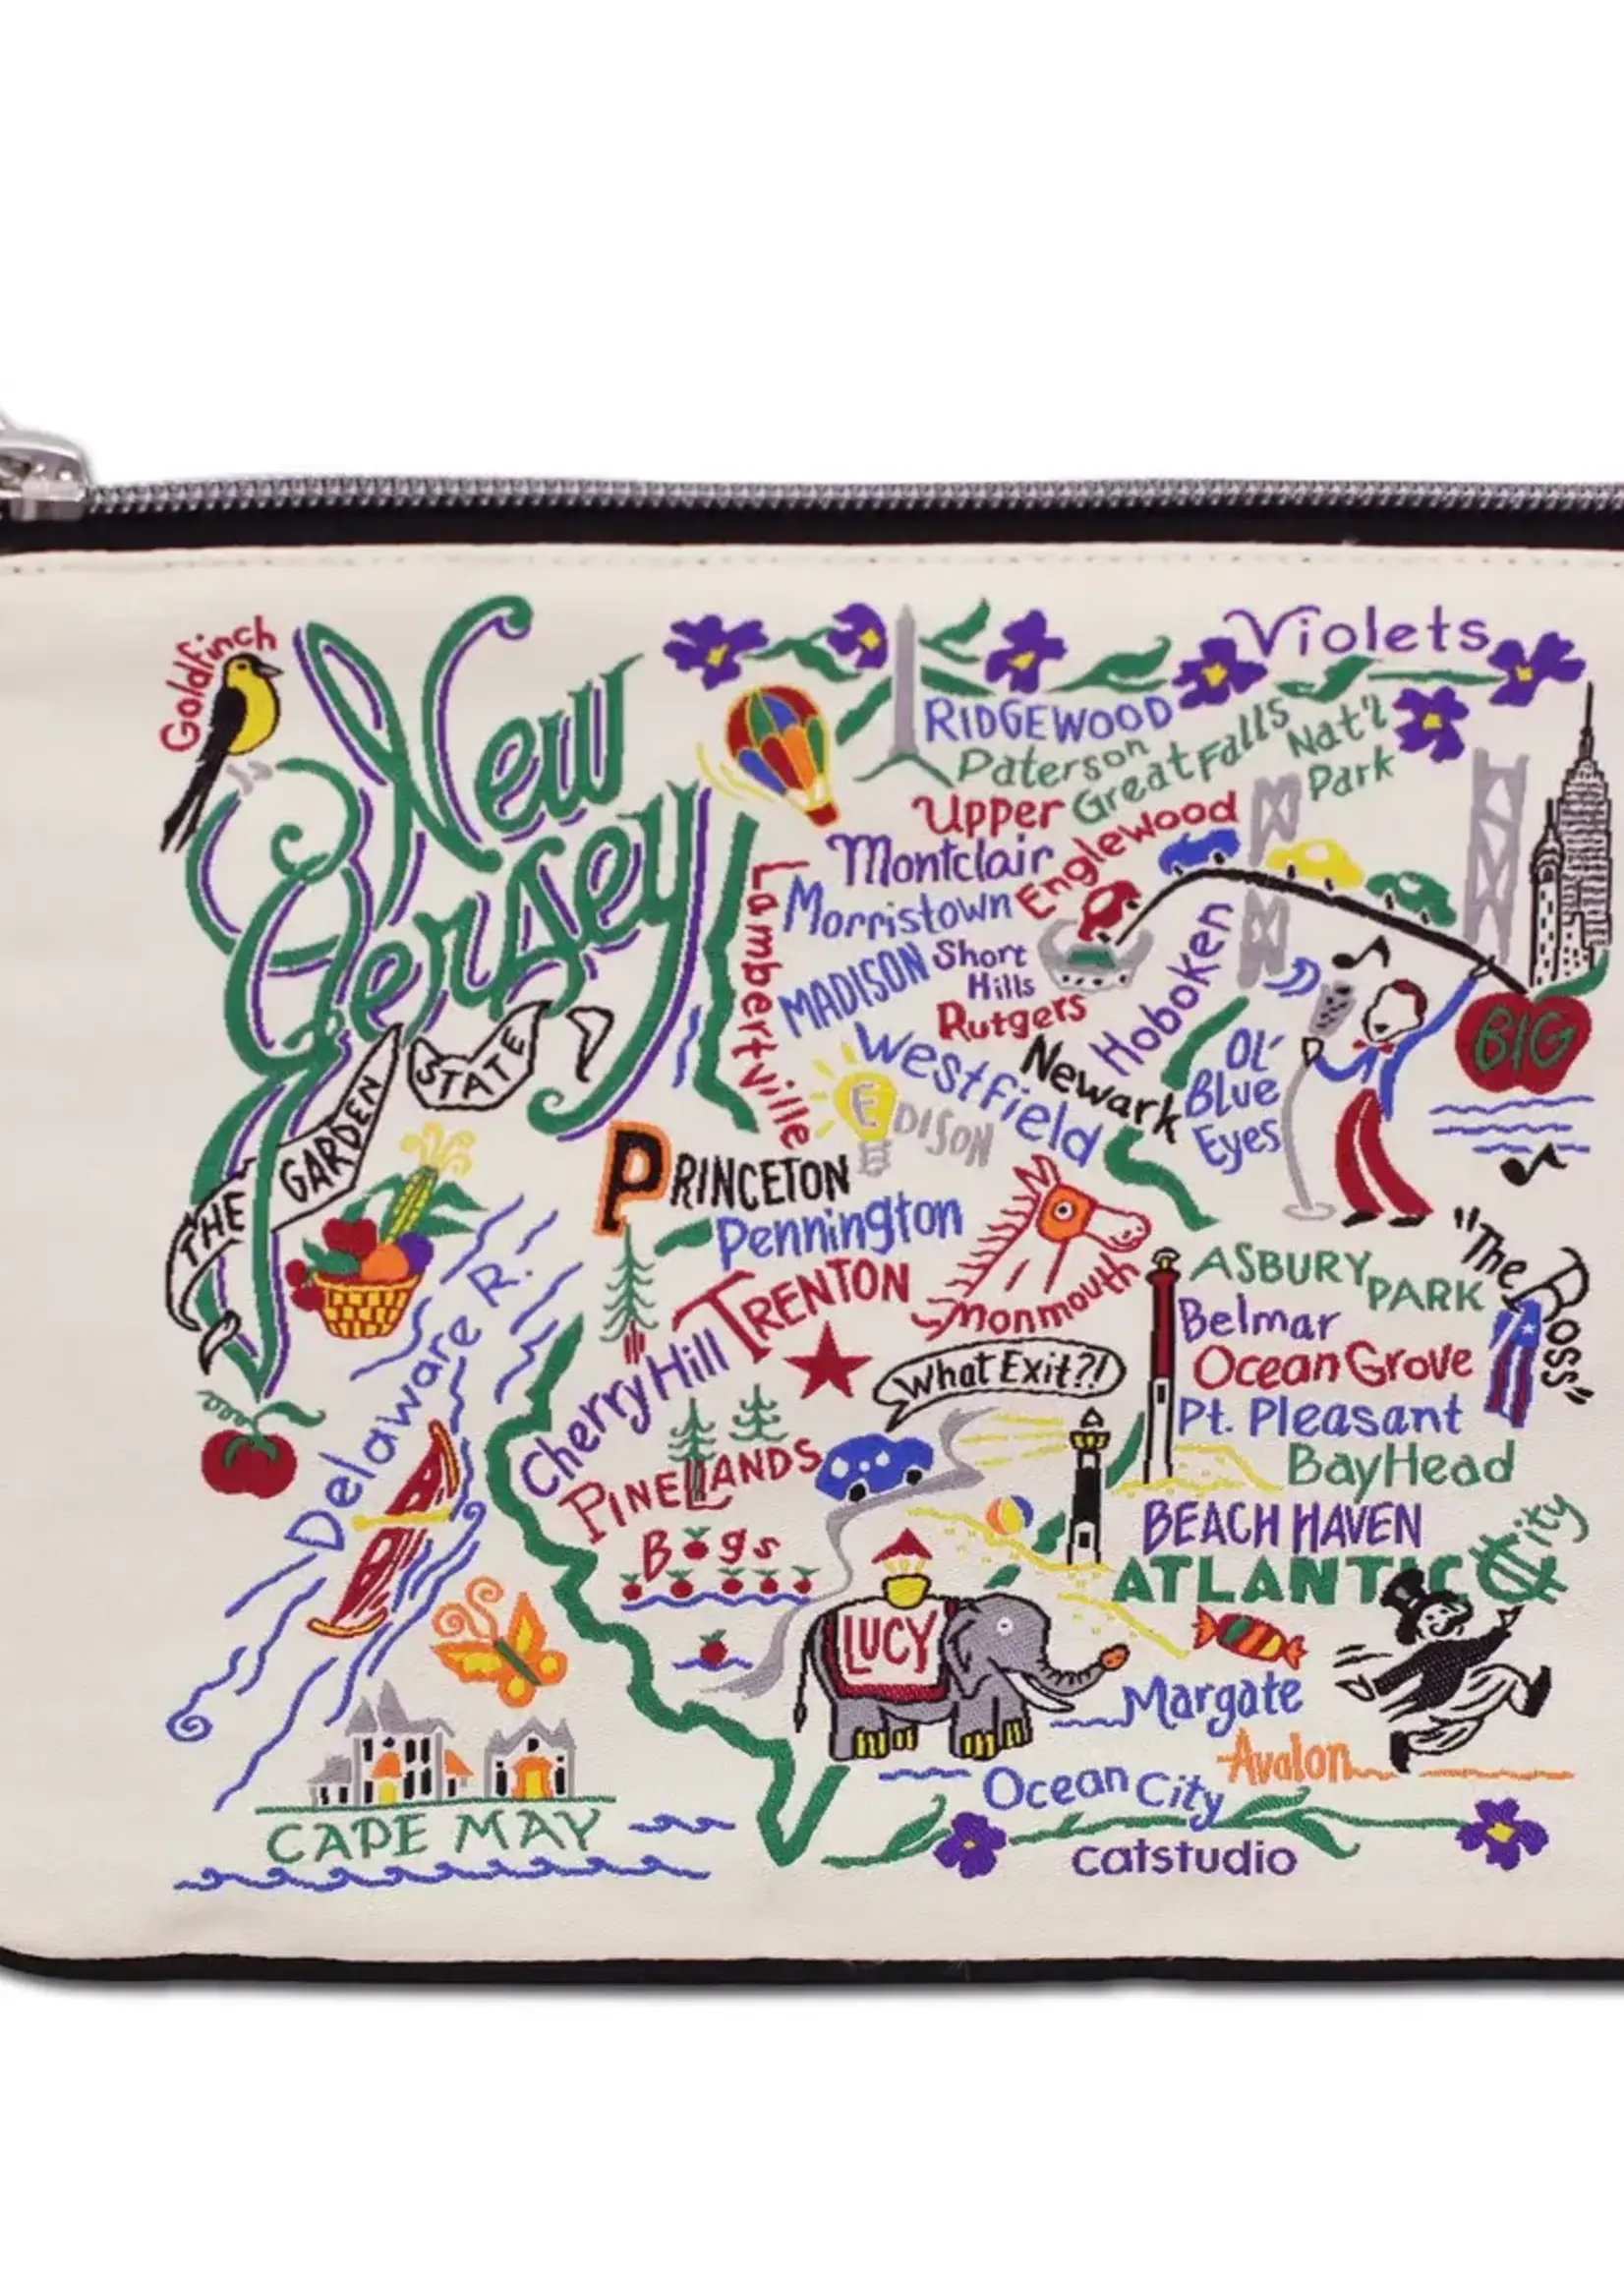 Goldfinch
New
Jersey
THE GARDEN STATE
Violets
RIDGEWOOD
Paterson
Great Falls
Nat'l
Park
Upper
Montclair
Englewood
Lambertville
Morristown
MADISON
Short
Hills
Rutgers
Hoboken
Westfield
Newark
EDISON
OL'
Blue
Eyes
BIG
PRINCETON
Pennington
TRENTON
Monmouth
Delaware R.
Cherry Hill
What Exit?!
ASBURY
PARK
"The Boss"
Belmar
Ocean Grove
Pt. Pleasant
Bay Head
PINELANDS
Bogs
BEACH HAVEN
ATLANTIC City
LUCY
Margate
Avalon
Ocean City
CAPE MAY
catstudio